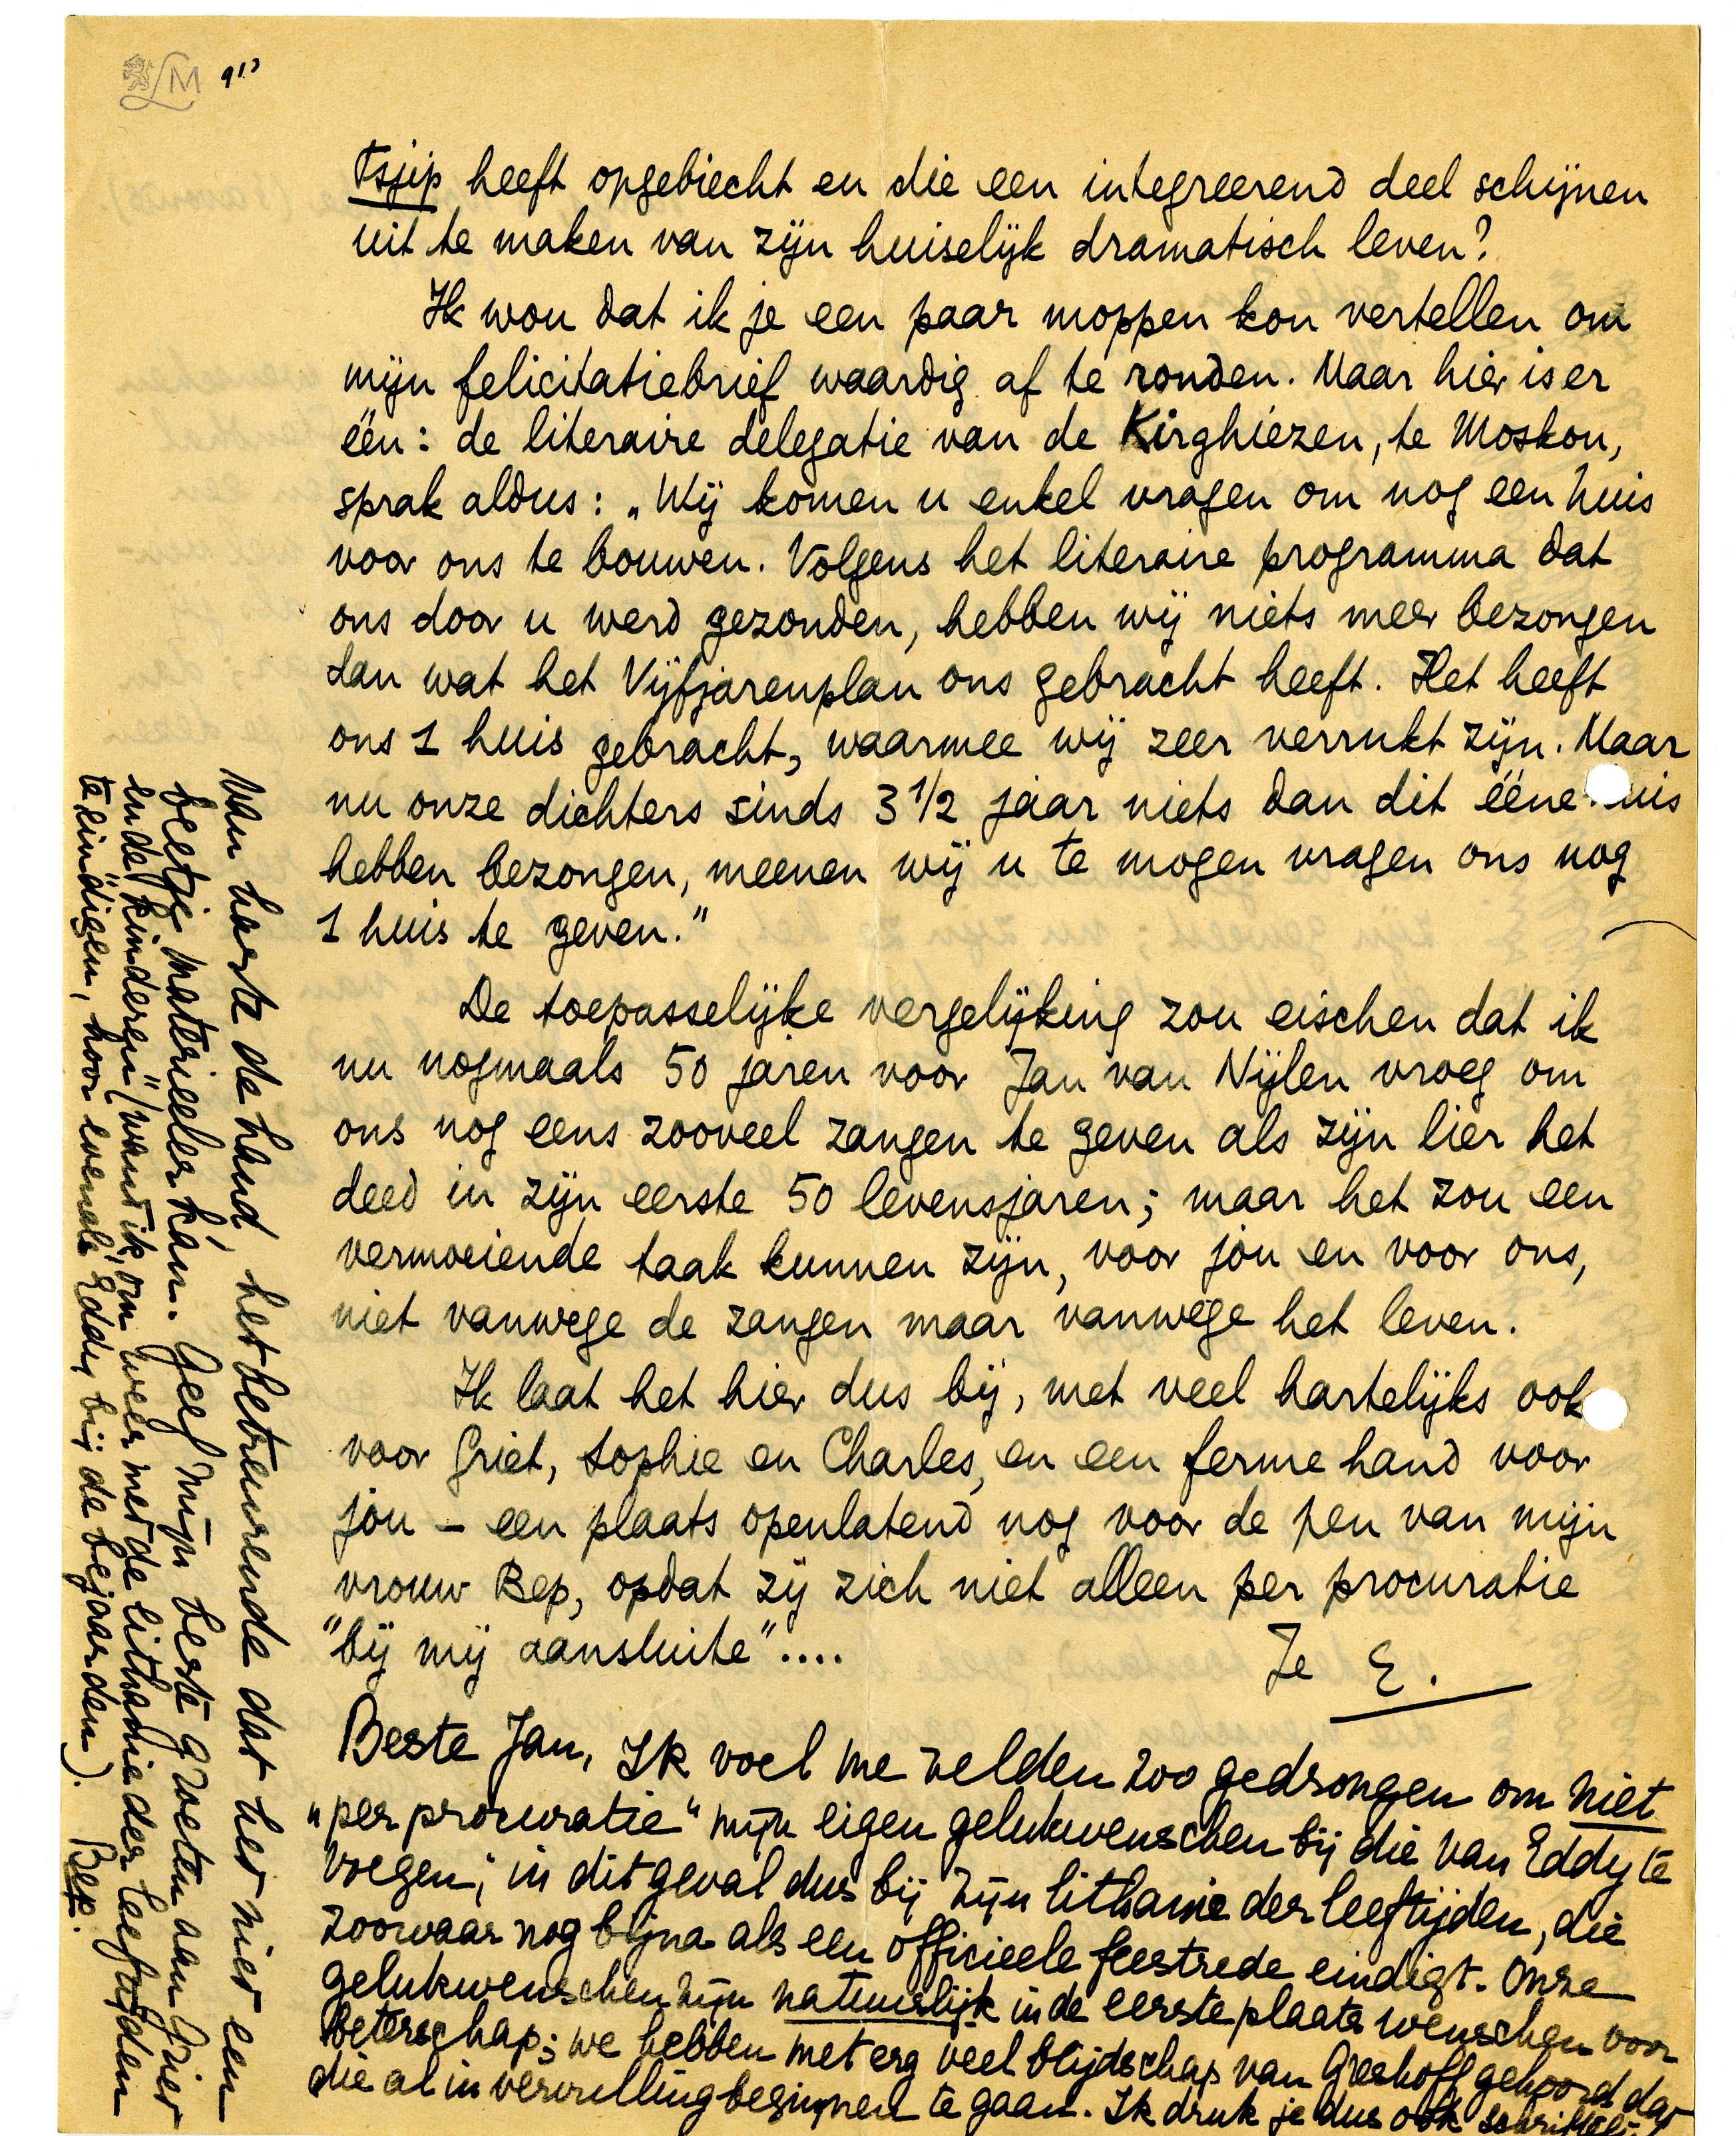 LM 913
Tsjip heeft opgebiecht en die een integreerend deel schijnen
uit te maken van zijn huiselijk dramatisch leven?
Ik wou dat ik je een paar moppen kon vertellen om
mijn felicitatiebrief waardig af te ronden. Maar hier is er
één: de literaire delegatie van de Kirghiezen, te Moskou,
sprak aldus: „Wij komen u enkel vragen om nog een huis
voor ons te bouwen. Volgens het literaire programma dat
ons door u werd gezonden, hebben wij niets meer bezongen
dan wat het Vijfjarenplan ons gebracht heeft. Het heeft
ons 1 huis gebracht, waarmee wij zeer verrukt zijn. Maar
nu onze dichters sinds 3 1/2 jaar niets dan dit ééne huis
hebben bezongen, meenen wij u te mogen vragen ons nog
1 huis te geven."
De toepasselijke vergelijking zou eischen dat ik
nu nogmaals 50 jaren voor Jan van Nijlen vroeg om
ons nog eens zooveel zangen te geven als zijn lier het
deed in zijn eerste 50 levensjaren; maar het zou een
vermoeiende taak kunnen zijn, voor jóu en voor ons,
niet vanwege de zangen maar vanwege het leven.
Ik laat het hier dus bij, met veel hartelijks ook
voor Griet, Sophie en Charles, en een ferme hand voor
jóu – een plaats openlatend nog voor de pen van mijn
vrouw Bep, opdat zij zich niet alleen per procuratie
"bij mij aansluite"....
Je E.
Beste Jan, Ik voel me zelden zoo gedrongen om niet
„per procuratie" mijn eigen gelukwenschen bij die van Eddy te
voegen; in dit geval dus bij zijn lithanie der leeftijden, die
zoowaar nog bijna als een officieele feestrede eindigt. Onze
gelukwenschen zijn natuurlijk in de eerste plaats wenschen voor
beterschap; we hebben met erg veel blijdschap van Greshoff gehoord dat
die al in vervulling beginnen te gaan. Ik druk je dus ook schriftelijk
van harte de hand, het betreurende dat het niet een
beetje materieeler kan. Geef mijn beste groeten aan Griet
en de „kinderen" (want ik, om weer met de lithanie der leeftijden
te eindigen, hoor evenals Eddy bij de bejaarden). Bep.